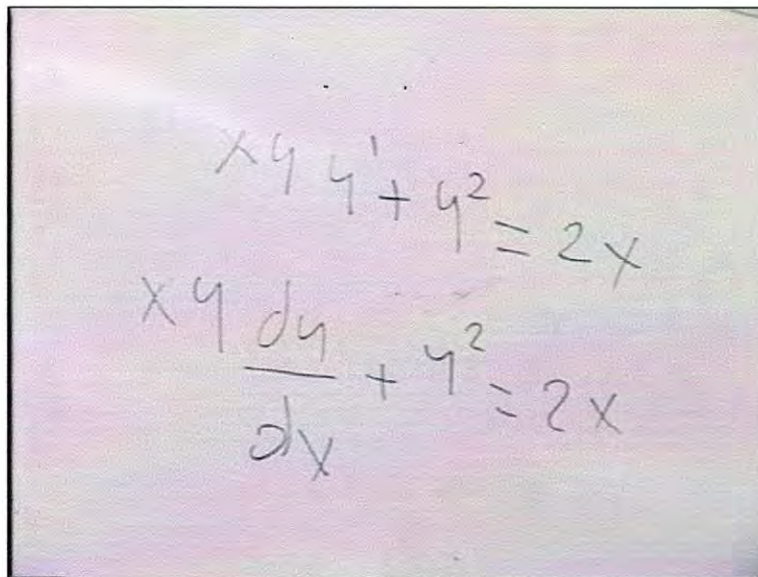 xyy' + y² = 2x
xy dy/dx + y² = 2x